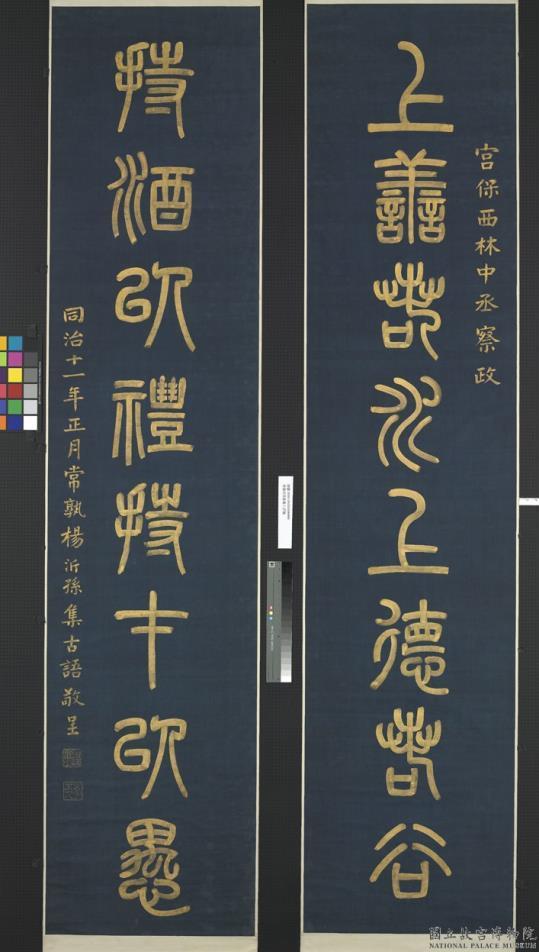 宮保西林中丞察政
上善若水上德若谷
持酒以禮持才以愚
同治十一年正月常孰楊沂孫集古語敬呈
國立故宮博物院
NATIONAL PALACE MUSEUM